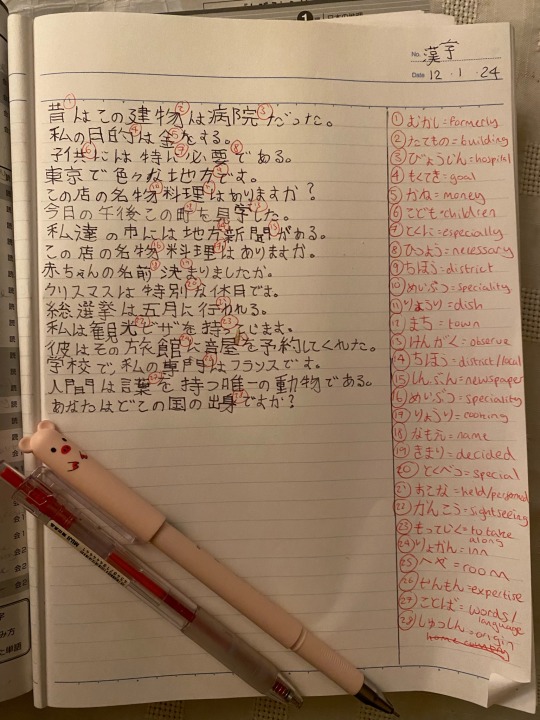 No. 漢字
Date 12 · 1 · 24
昔①はこの建物②は病院③だった。
私の目的④は金⑤をする。
子供⑥には特に⑦必要⑧である。
東京で色々な地方⑨です。
この店の名物⑩料理⑪はありますか？
今日の午後この町⑫を見学⑬した。
私達の市には地方⑭新聞⑮がある。
この店の名物⑯料理⑰はありますか。
赤ちゃんの名前⑱決⑲まりましたか。
クリスマスは特別⑳な休日です。
総選挙は五月に行われる。
私は観光ビザを持っています。
彼はその旅館に部屋を予約してくれた。
学校で、私の専門はフランスです。
人間は言葉を持つ唯一の動物である。
あなたはどこの国の出身ですか？
① むかし = formerly
② たてもの = building
③ びょういん = hospital
④ もくてき = goal
⑤ かね = money
⑥ こども = children
⑦ とくに = especially
⑧ ひつよう = necessary
⑨ ちほう = district
⑩ めいぶつ = speciality
⑪ りょうり = dish
⑫ まち = town
⑬ けんがく = observe
⑭ ちほう = district/local
⑮ しんぶん = newspaper
⑯ めいぶつ = speciality
⑰ りょうり = cooking
⑱ なまえ = name
⑲ きまり = decided
⑳ とくべつ = special
㉑ おこな = held/performed
㉒ かんこう = sightseeing
㉓ もっていく = to take along
㉔ りょかん = inn
㉕ へや = room
㉖ せんもん = expertise
㉗ ことば = words/language
㉘ しゅっしん = origin
home country